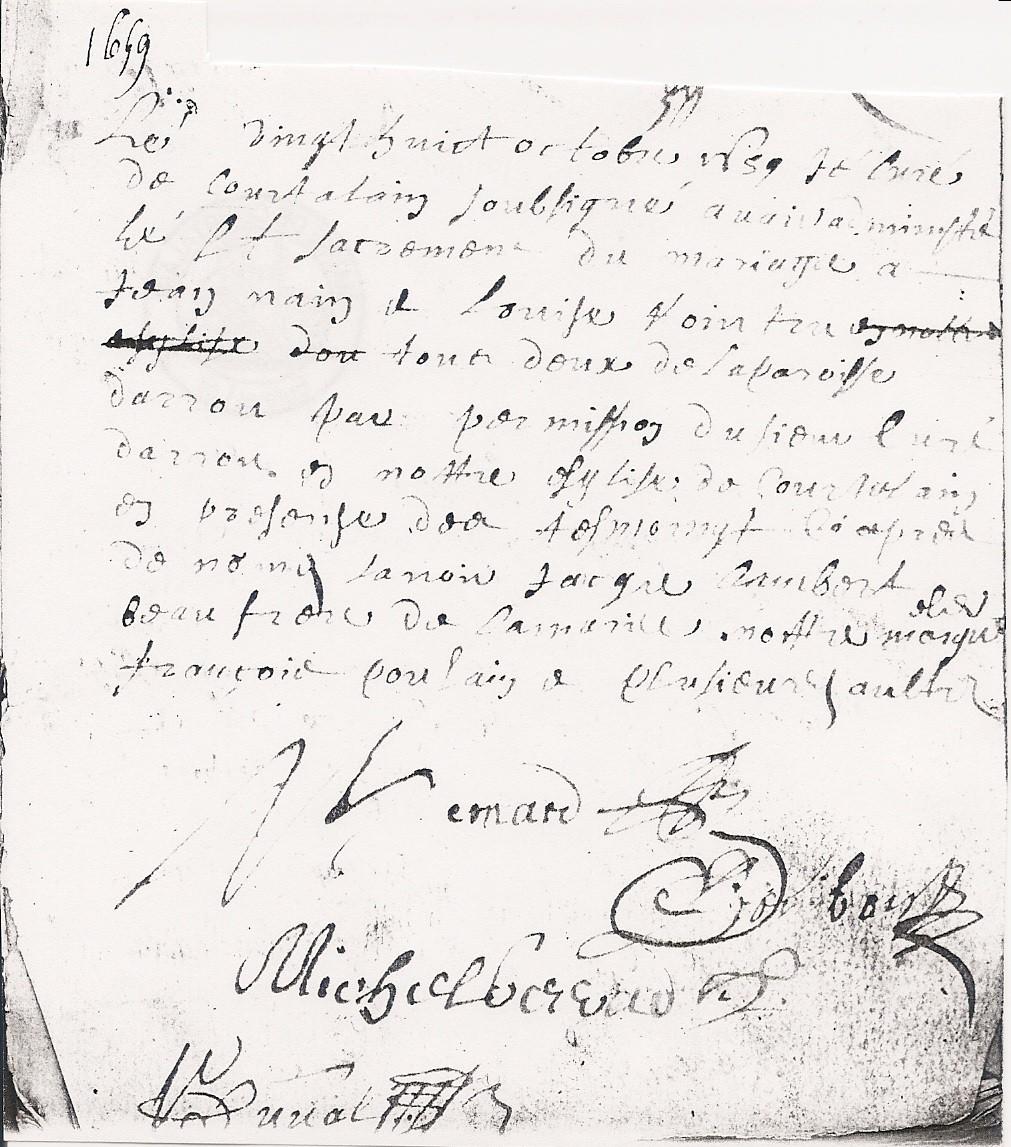 1659
Le vingt huict octobre 1659 Je Curé
de Courtalain soubsigné avoir administré
le St sacrement du mariage a
Jean nain & Louise pointeau en nottre
esglise dou tous deux de la paroisse
darrou par permission du sieur Curé
darrou en nottre esglise de Courtalain
en presense des tesmoings Ci apres
de nommé sanoir Jacque Aubert
beau frere de La mariee nottre clerc
françois poulain & plusieurs aultres
Michel
Duval